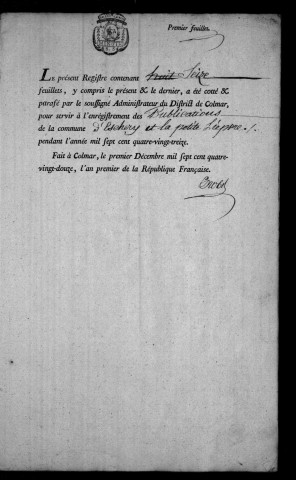 Premier feuillet.
LE présent Registre contenant huit Seize
feuillets, y compris le présent & le dernier, a été cotté &
parafé par le soussigné Administrateur du District de Colmar,
pour servir à l'enrégistrement des Publications
de la commune d'Eschery et la petite Liepvre ./.
pendant l'année mil sept cent quatre-vingt-treize.
Fait à Colmar, le premier Décembre mil sept cent quatre-
vingt-douze, l'an premier de la République Française.